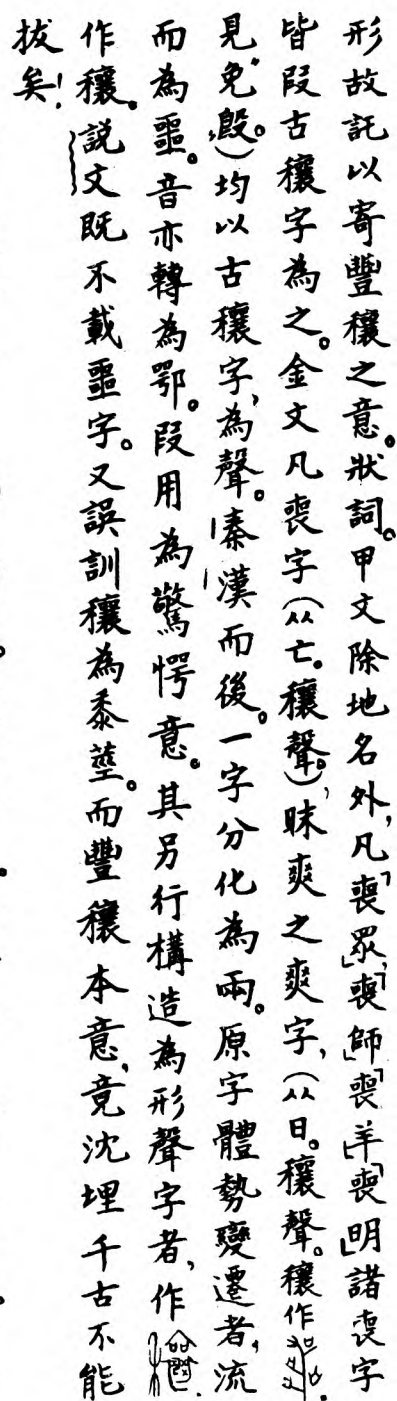 形故託以寄豐穰之意。狀詞。甲文除地名外,凡「喪眾」,「喪師」「喪羊」「喪明」諸喪字
皆叚古穰字為之。金文凡喪字(从亡。穰聲。),昧爽之爽字,(从日。穰聲。穰作
見免𣪘。)均以古穰字,為聲。秦漢而後。一字分化為兩。原字體勢變遷者,流
而為噩。音亦轉為鄂。叚用為驚愕意。其另行構造為形聲字者,作
作穰。説文既不載噩字。又誤訓穰為黍䕞。而豐穰本意,竟沈埋千古不能
拔矣!